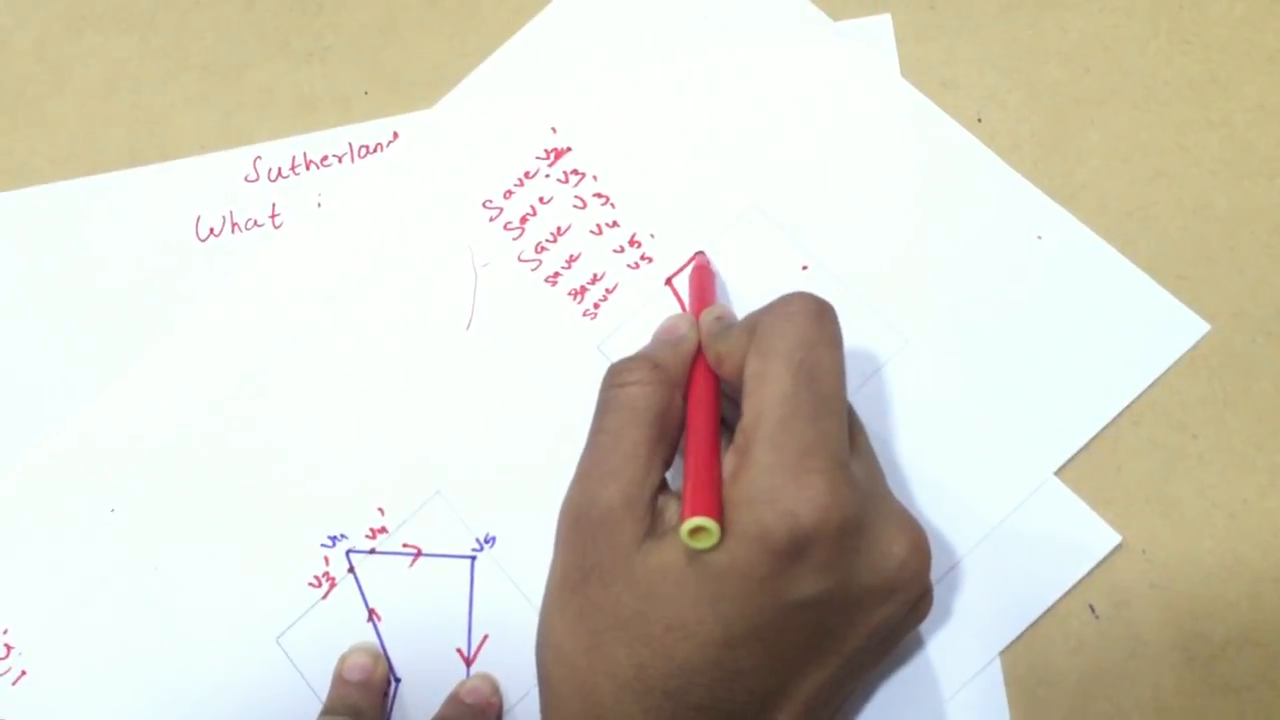 Sutherlan
What :
Save V2'
Save V3'
Save V3'
Save V4
Save V5'
Save V5
V4 V4' V5
V3'